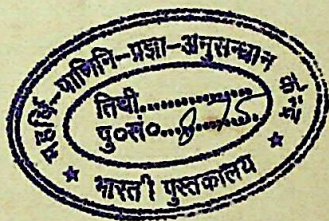 महर्षि-पाणिनि-प्रज्ञा-अनुसन्धान केन्द्र
तिथी..............
पु०सं०...8-75...
भारती पुस्तकालय